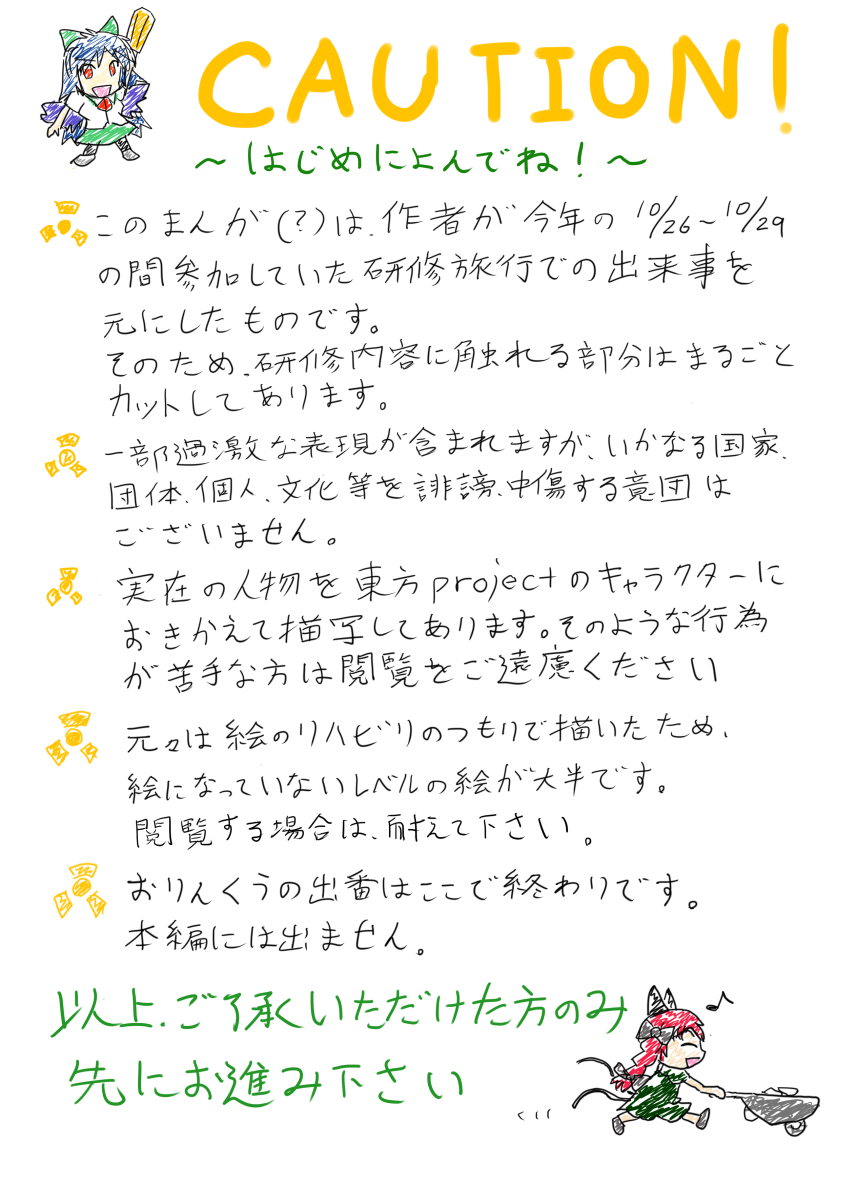 CAUTION!
～はじめによんでね！～
このまんが(?)は、作者が今年の10/26～10/29
の間参加していた研修旅行での出来事を
元にしたものです。
そのため、研修内容に触れる部分はまるごと
カットしてあります。
一部過激な表現が含まれますが、いかなる国家、
団体、個人、文化等を誹謗、中傷する意図は
ございません。
実在の人物を東方projectのキャラクターに
おきかえて描写してあります。そのような行為
が苦手な方は閲覧をご遠慮ください
元々は絵のリハビリのつもりで描いたため、
絵になっていないレベルの絵が大半です。
閲覧する場合は、耐えて下さい。
おりんくうの出番はここで終わりです。
本編には出ません。
以上、ご了承いただけた方のみ
先にお進み下さい